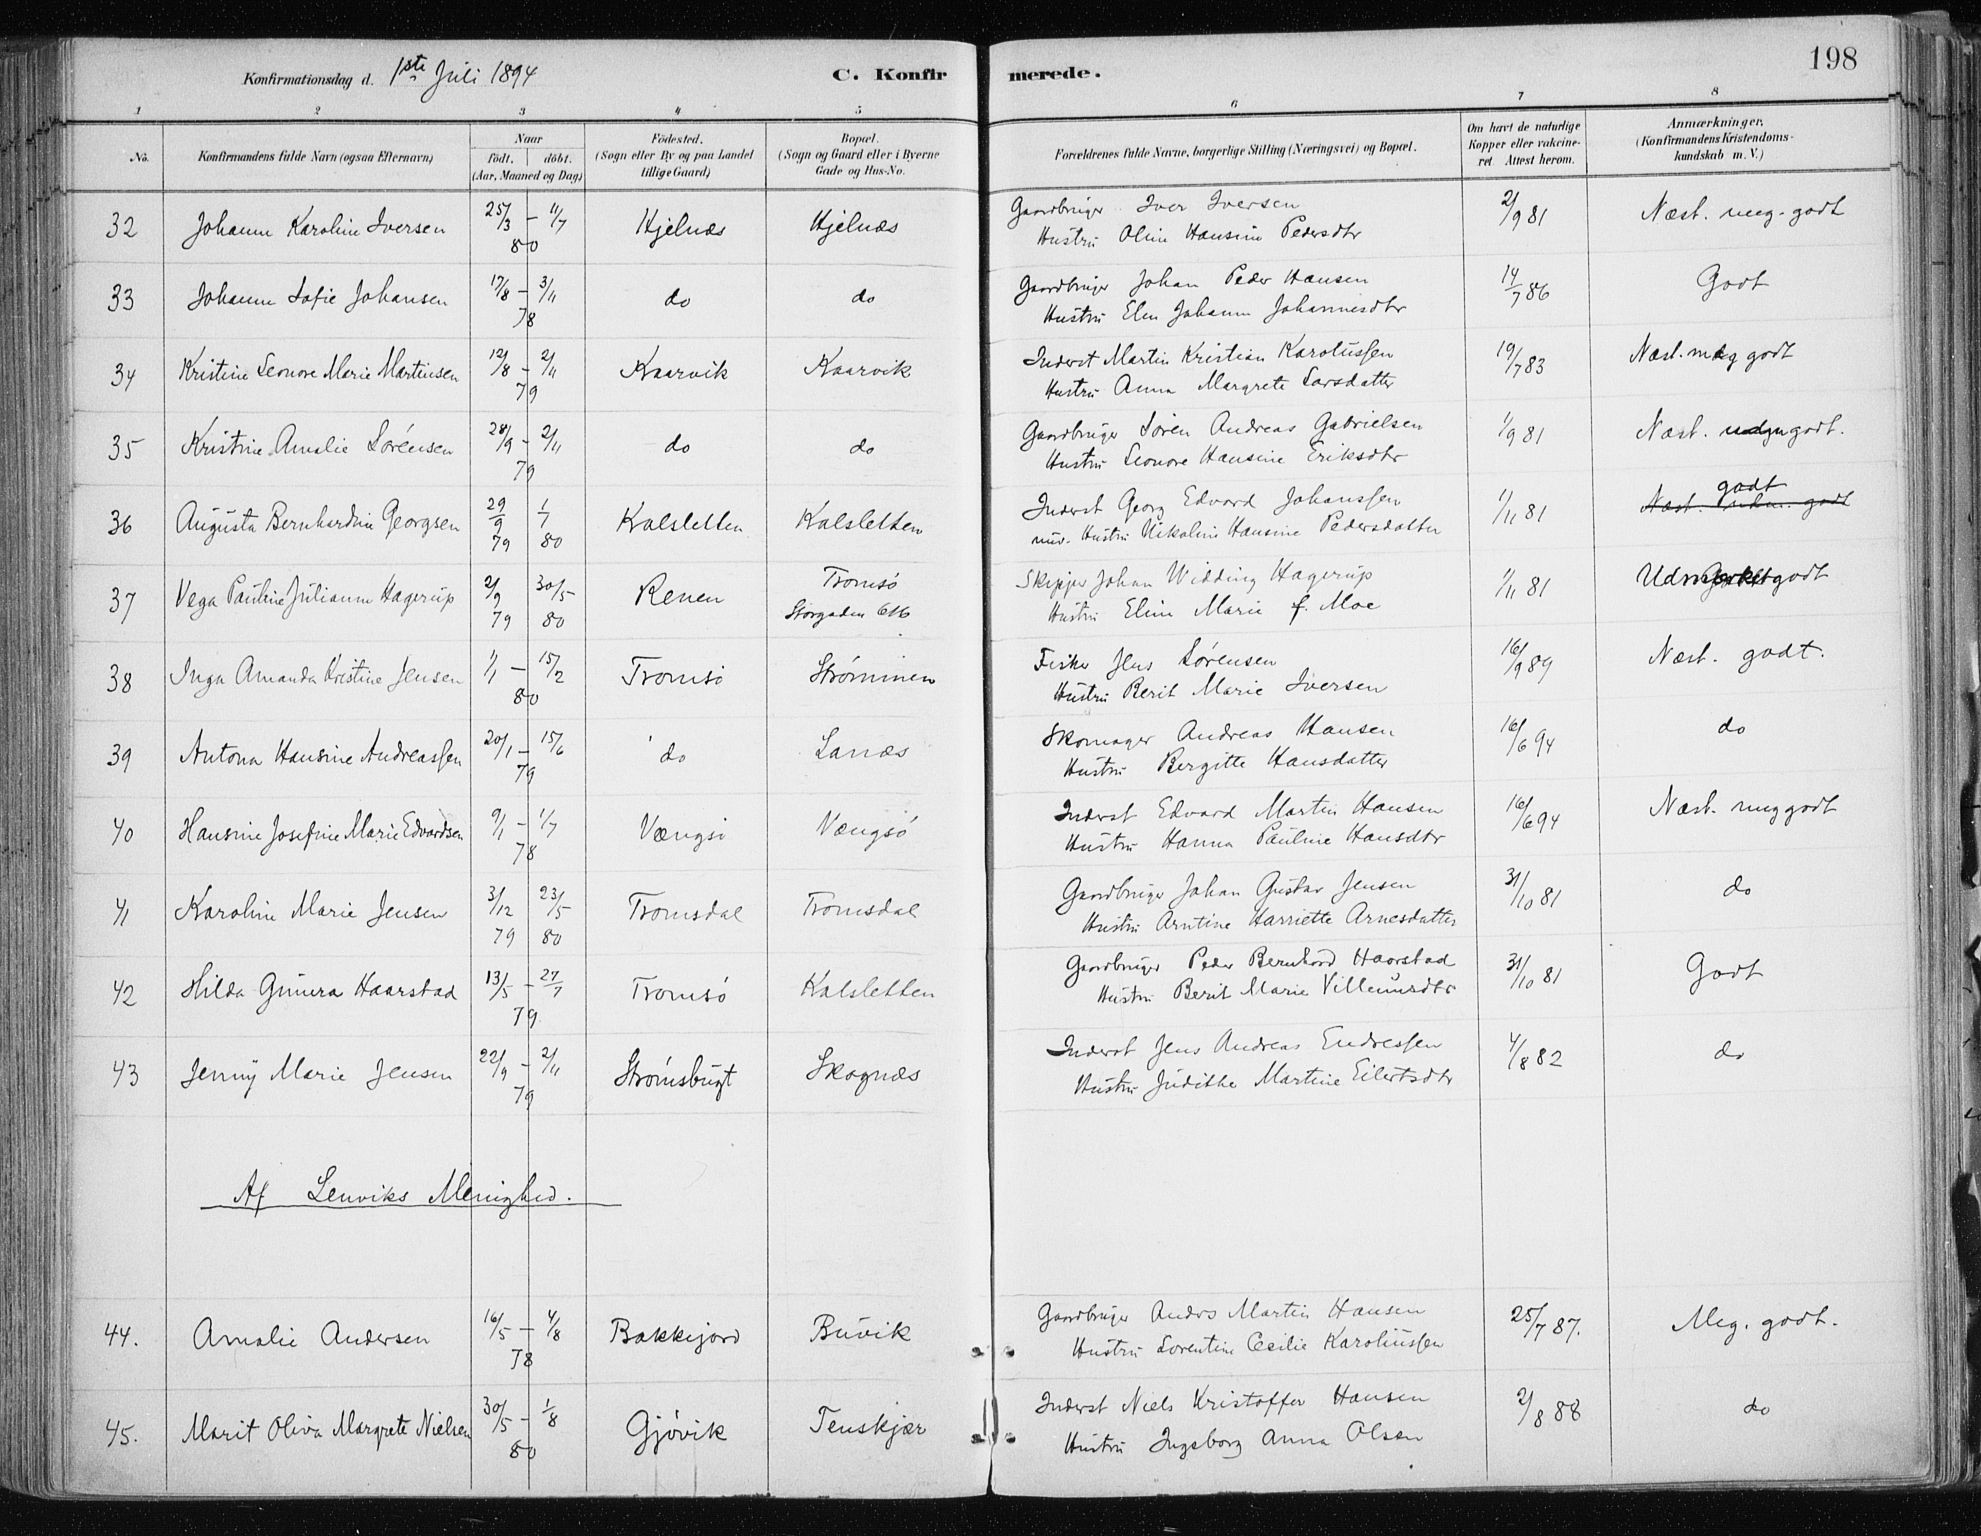 198
Konfirmationsdag d. 1ste Juli 1894 C. Konfirmerede.
1 2 3 4 5 6 7 8
No. Konfirmandens fulde Navn (ogsaa Efternavn) Naar født. døbt. (Aar, Maaned og Dag) Fødested. (Sogn eller By og paa Landet tillige Gaard) Bopæl. (Sogn og Gaard eller i Byerne Gade og Hus-No. Forældrenes fulde Navne, borgerlige Stilling (Næringsvei) og Bopæl. Om havt de naturlige Kopper eller vakcineret. Attest herom. Anmærkninger. (Konfirmandens Kristendomskundskab m. V.)
32 Johanne Karoline Iversen 25/3 – 11/7 80 Hjelnæs Hjelnæs Gaardbruger Iver Iversen 2/9 81 Næst. meg. godt
Hustru Oline Hansine Pedersdtr
33 Johanne Sofie Johansen 17/8 – 3/11 78 do do Gaardbruger Johan Peder Hansen 14/7 86 Godt
Hustru Elen Johanne Johannesdtr
34 Kristine Leonore Marie Martinsen 12/8 – 2/11 79 Kaarvik Kaarvik Inderst Martin Kristian Karolussen 19/7 83 Næst. meg godt
Hustru Anna Margrete Larsdatter
35 Kristine Amalie Sørensen 28/9 – 2/11 79 do do Gaardbruger Søren Andreas Gabrielsen 1/9 81 Næst. godt.
Hustru Leonore Hansine Eriksdtr
36 Augusta Bernhardine Georgsen 29/9 79 1/7 80 Kalsletten Kalsletten Inderst Georg Edvard Johanssen 1/11 81 Næst. godt godt
nuv. Hustru Nikoline Hansine Pedersdatter
37 Vega Pauline Julianne Hagerup 2/9 79 30/5 80 Renen Tromsø Storgaden 61b Skipper Johan Widding Hagerup 1/11 81 Udmerket godt
Hustru Eline Marie f. Moe
38 Inga Amanda Kristine Jensen 1/1 – 15/2 80 Tromsø Strømmen Fisker Jens Sørensen 16/9 89 Næst. godt.
Hustru Berit Marie Iversen
39 Antona Hansine Andreassen 20/1 – 15/6 79 do Lanæs Skomager Andreas Hansen 16/6 94 do
Hustru Bergitte Hansdatter
40 Hansine Josefine Marie Edvardsen 9/1 – 1/7 78 Vængsø Vængsø Inderst Edvard Martin Hansen 16/6 94 Næst. meg godt
Hustru Hanna Pauline Hansdtr
41 Karoline Marie Jensen 3/12 79 23/5 80 Tromsdal Tromsdal Gaardbruger Johan Gustav Jensen 31/10 81 do
Hustru Arntine Harriette Arnesdatter
42 Hilda Gunvra Haarstad 13/5 – 27/7 79 Tromsø Kalsletten Gaardbruger Peder Bernhard Haarstad 31/10 81 Godt
Hustru Berit Marie Villumsdtr
43 Jenny Marie Jensen 22/9 – 2/11 79 Strømsbugt Skognæs Inderst Jens Andreas Endressen 4/8 82 do
Hustru Judithe Martine Eilertsdtr
Af Lenviks Menighed.
44. Amalie Andersen 16/5 – 4/8 78 Bakkejord Buvik Gaardbruger Anders Martin Hansen 25/7 87. Meg. godt.
Hustru Lorentine Cecilie Karoliussen
45. Marit Oliva Margrete Nielsen 30/5 – 1/8 80 Gjøvik Tenskjær Inderst Niels Kristoffer Hansen 2/8 88 do
Hustru Ingeborg Anna Olsen